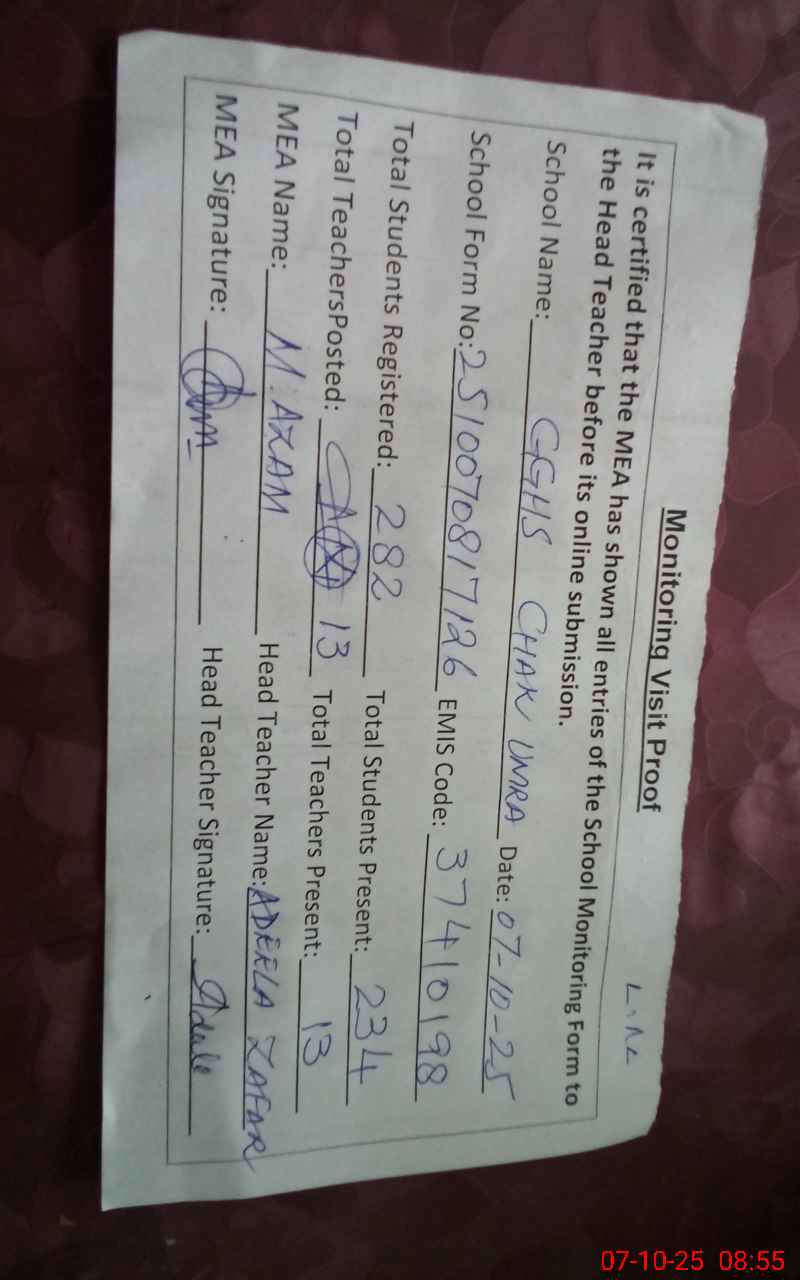 Monitoring Visit Proof
It is certified that the MEA has shown all entries of the School Monitoring Form to
the Head Teacher before its online submission.
School Name: GGHS CHAK UMRA Date: 07-10-25
School Form No: 2510070817126 EMIS Code: 37410198
Total Students Registered: 282 Total Students Present: 234
Total TeachersPosted: 13 Total Teachers Present: 13
MEA Name: M. AZAM Head Teacher Name: ADEELA ZAFAR
MEA Signature: Head Teacher Signature:
07-10-25 08:55